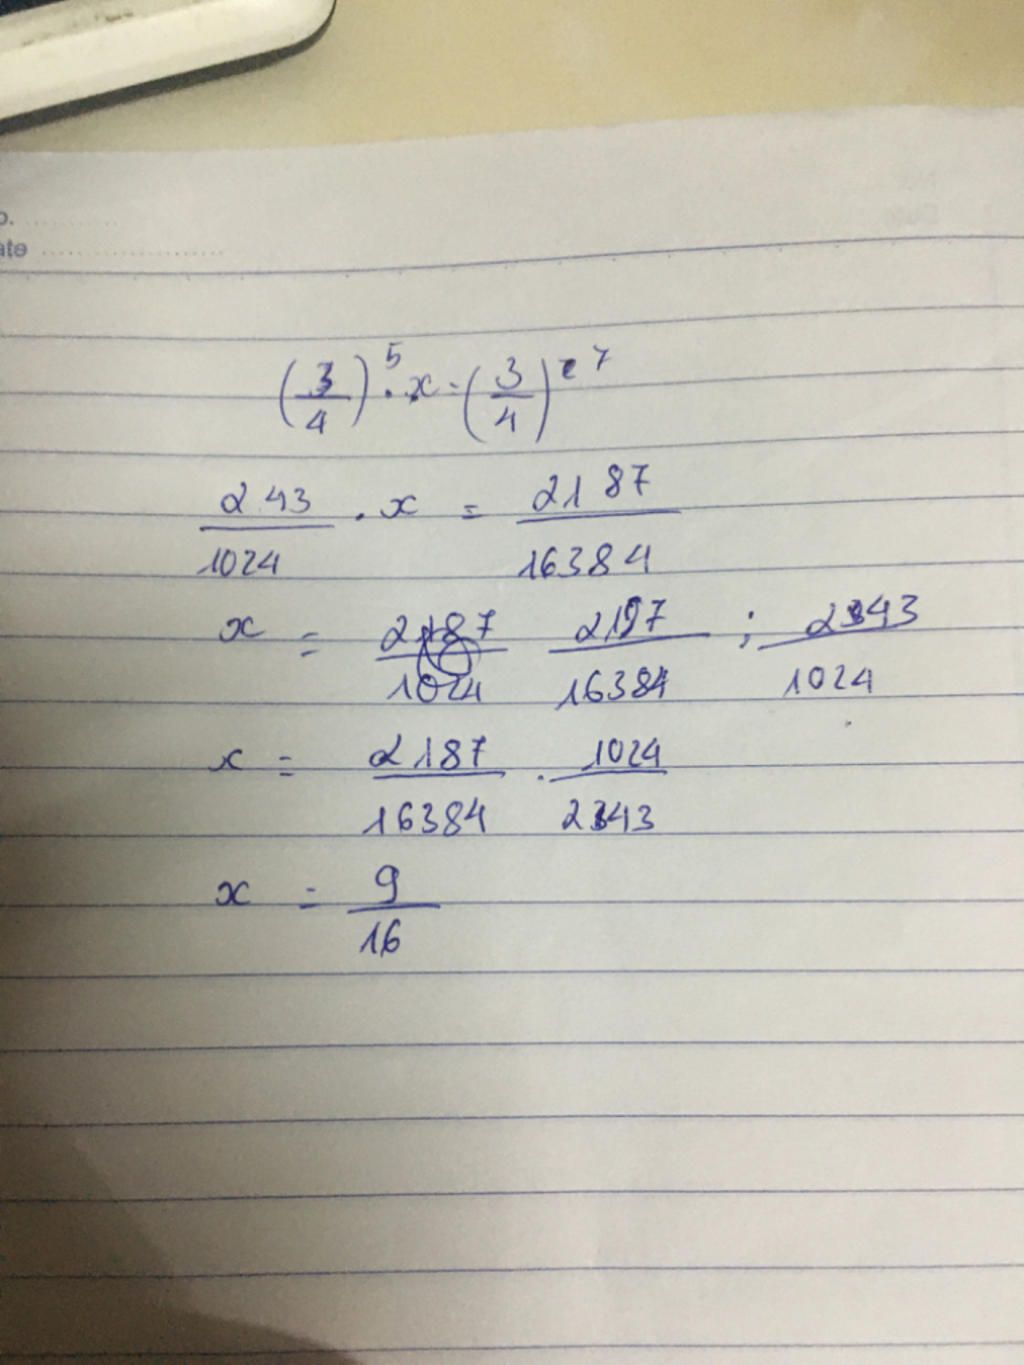 o. ............
ate ......................
(3/4)^5 . x = (3/4)^7
243/1024 . x = 2187/16384
x = 2187/16384 : 243/1024
x = 2187/16384 . 1024/243
x = 9/16